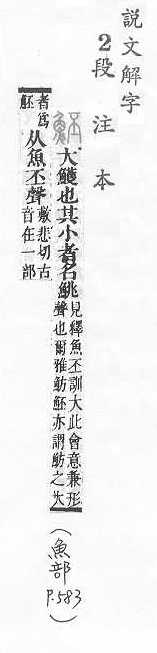 說文解字
2段注本
魾 大鱯也其小者名鮡見釋魚丕訓大此會意兼形
聲也爾雅魴魾亦謂魴之大
者爲魾从魚丕聲敷悲切古
音在一部
(魚部 P.583)